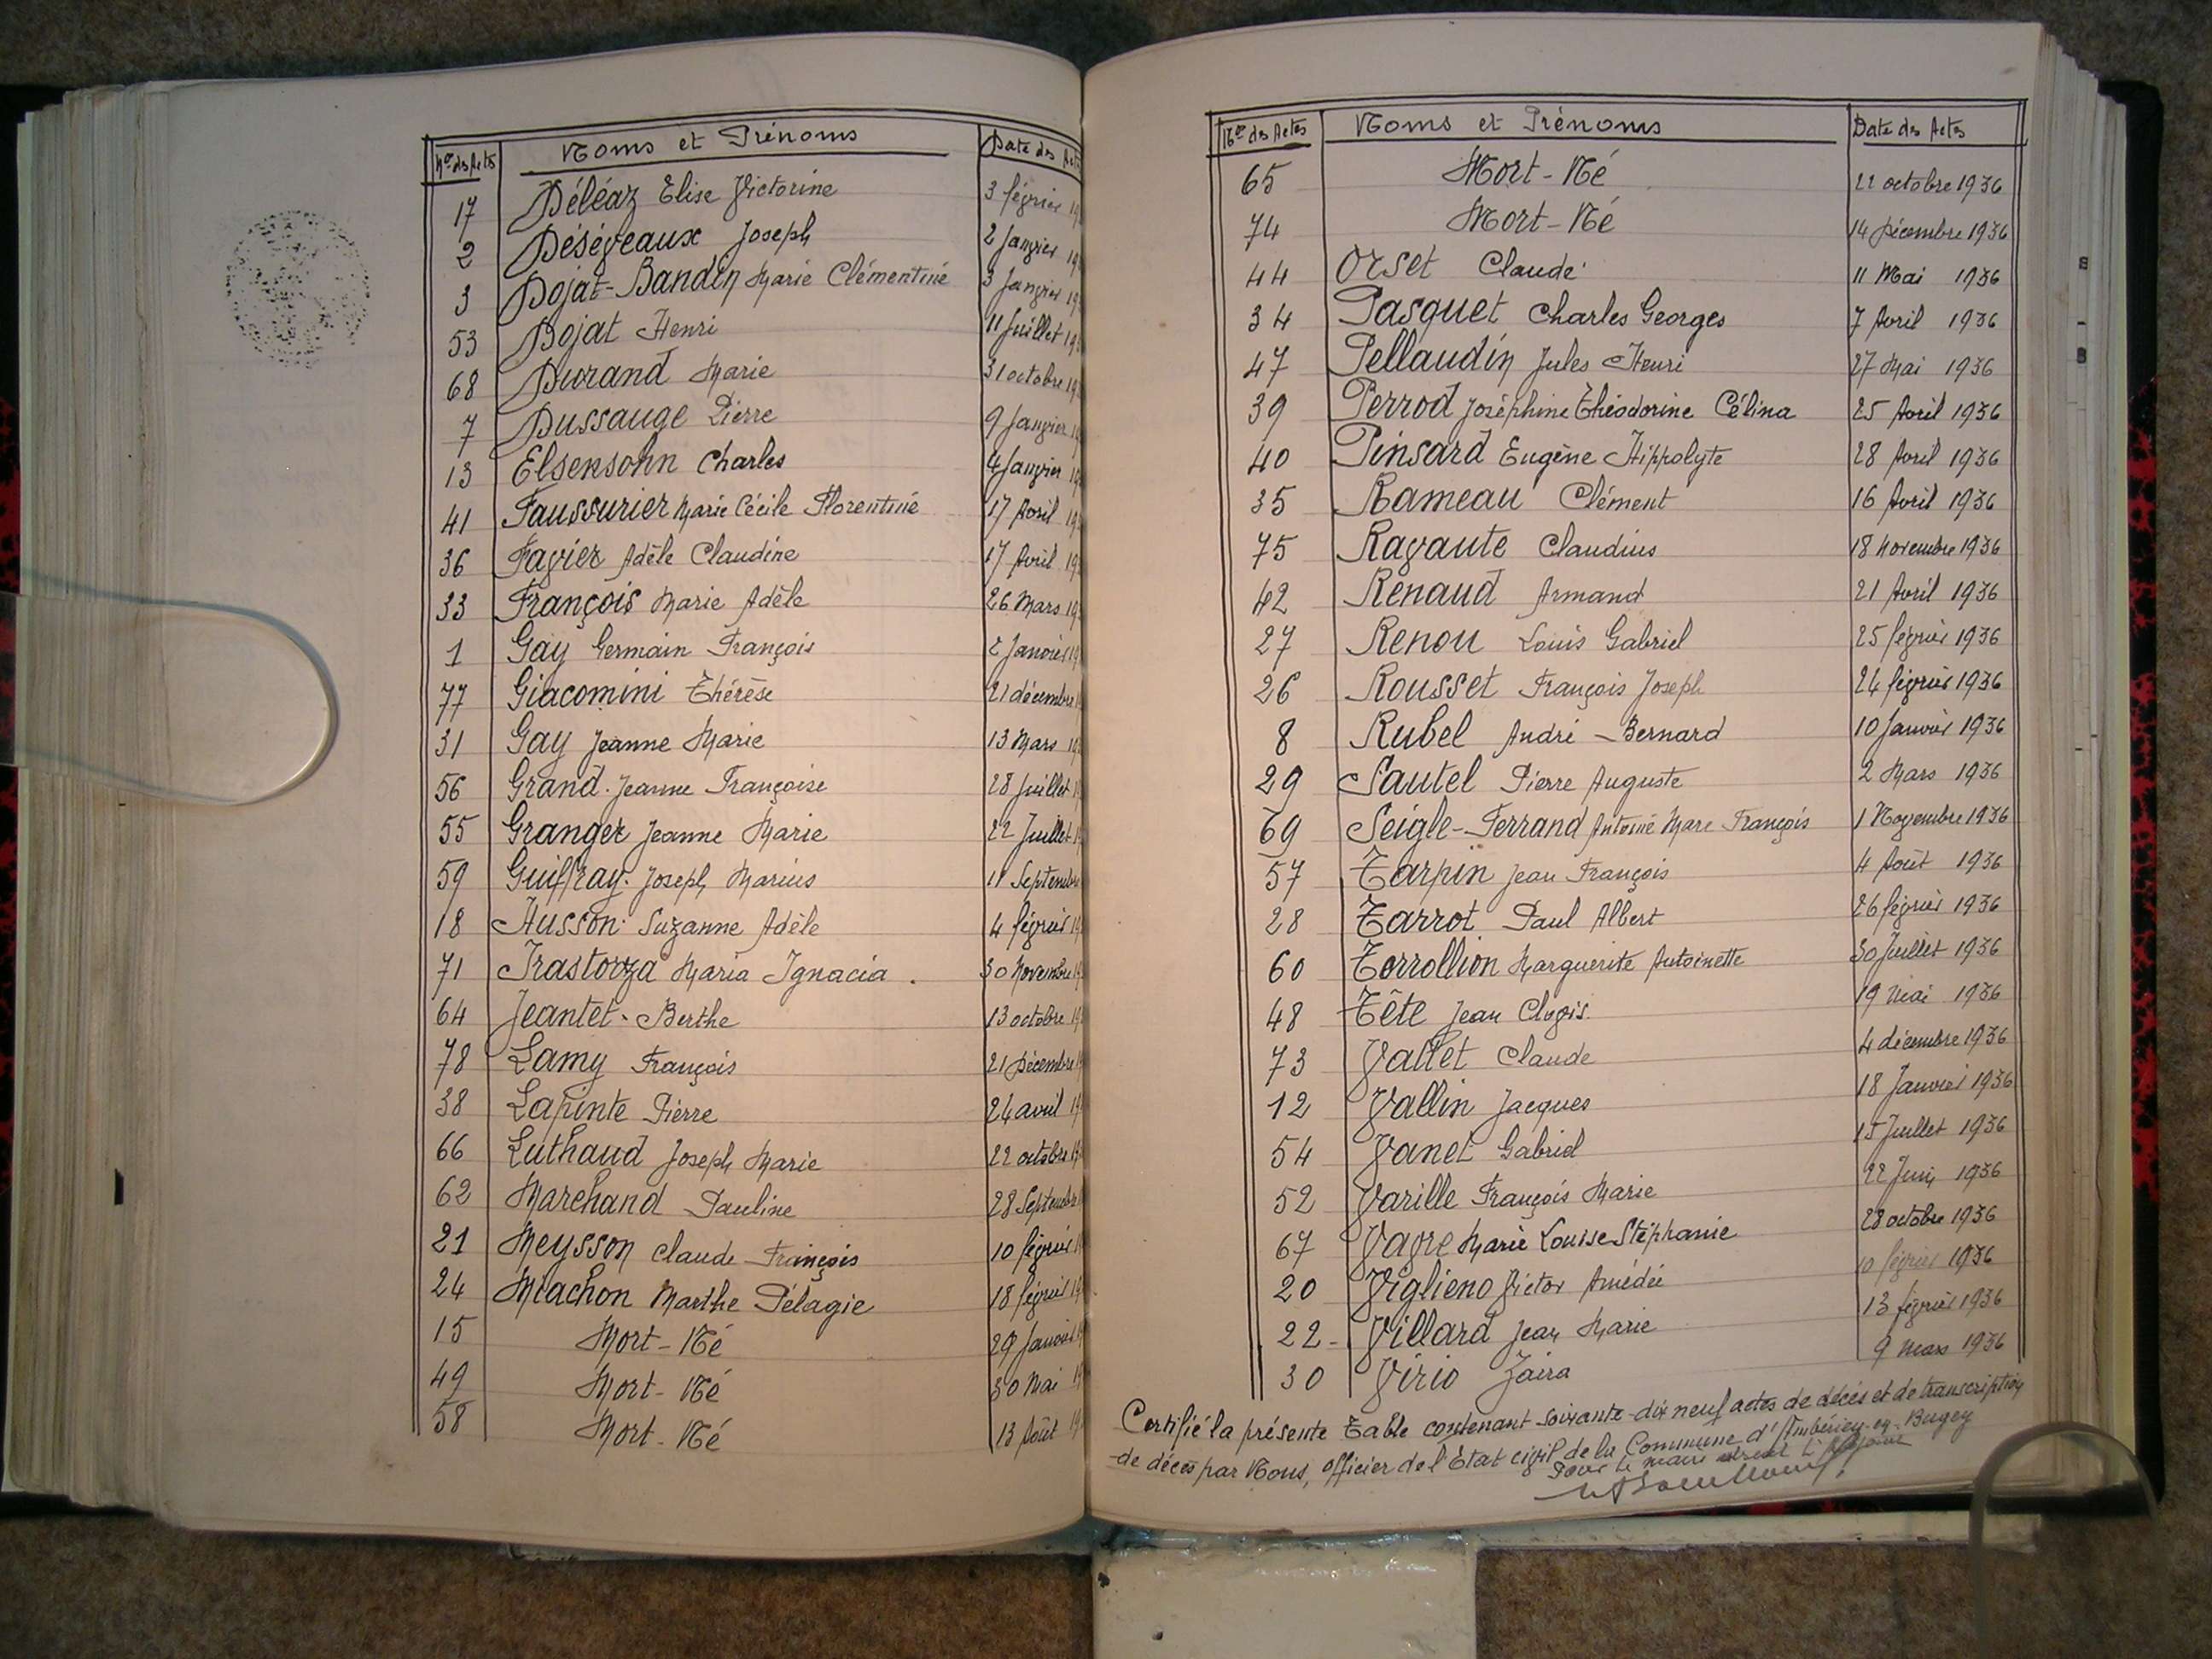 Nos des Actes Noms et Prénoms Date des Act
17 Déléaz Elise Victorine 3 février 19
2 Déséveaux Joseph 2 Janvier 19
3 Dojat-Bandin Marie Clémentine 3 Janvier 19
53 Dojat Henri 11 Juillet 19
68 Durand Marie 31 octobre 19
7 Dussauge Pierre 9 Janvier 19
13 Elsensohn Charles 4 Janvier 19
41 Faussurier Marie Cécile Florentine 17 Avril 19
36 Favier Adèle Claudine 17 Avril 19
33 François Marie Adèle 26 Mars 19
1 Gay Germain François 2 Janvier 19
77 Giacomini Thérèse 21 décembre 1
31 Gay Jeanne Marie 13 Mars 19
56 Grand Jeanne Françoise 28 Juillet 1
55 Granger Jeanne Marie 22 Juillet 1
59 Guiffray Joseph Marius 11 Septembre
18 Husson Suzanne Adèle 4 février 19
71 Irastorza Maria Ignacia. 30 Novembre 19
64 Jeantet Berthe 13 octobre 19
78 Lamy François 21 Décembre 1
38 Lapinte Pierre 24 avril 19
66 Luthaud Joseph Marie 22 octobre 19
62 Marchand Pauline 28 Septembre
21 Meysson Claude François 10 février 1
24 Miachon Marthe Pélagie 18 février 19
15 Mort-Né 29 Janvier 19
49 Mort-Né 30 Mai 19
58 Mort-Né 13 Août 19
Nos des Actes Noms et Prénoms Date des Actes
65 Mort-Né 22 octobre 1936
74 Mort-Né 14 Décembre 1936
44 Orset Claude 11 Mai 1936
34 Pasquet Charles Georges 7 Avril 1936
47 Pellaudin Jules Henri 27 Mai 1936
39 Perrod Joséphine Théodorine Célina 25 Avril 1936
40 Pinsard Eugène Hippolyte 28 Avril 1936
35 Rameau Clément 16 Avril 1936
75 Ravaute Claudius 18 Novembre 1936
42 Renaud Armand 21 Avril 1936
27 Renou Louis Gabriel 25 février 1936
26 Rousset François Joseph 24 février 1936
8 Rubel André-Bernard 10 Janvier 1936
29 Sautel Pierre Auguste 2 Mars 1936
69 Seigle-Ferrand Antoine Marc François 1 Novembre 1936
57 Tarpin Jean François 4 Août 1936
28 Tarrot Paul Albert 26 février 1936
60 Torrollion Marguerite Antoinette 30 Juillet 1936
48 Tête Jean Clovis. 19 Mai 1936
73 Vallet Claude 4 décembre 1936
12 Vallin Jacques 18 Janvier 1936
54 Vanel Gabriel 15 Juillet 1936
52 Varille François Marie 22 Juin 1936
67 Vavre Marie Louise Stéphanie 28 octobre 1936
20 Viglieno Victor Amédée 10 février 1936
22 Villard Jean Marie 13 février 1936
30 Virio Zaira 9 Mars 1936
Certifié la présente Table contenant soixante-dix neuf actes de décès et de transcription
de décès par Nous, officier de l'Etat civil de la Commune d'Ambérieu-en-Bugey
Pour le maire absent L'Adjoint